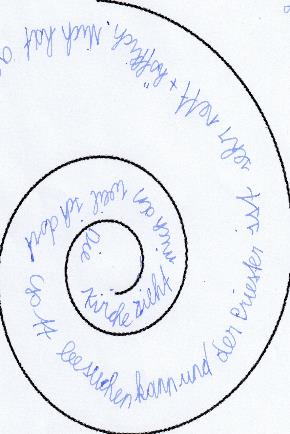 Die Kirche zieht mich an weil ich dort Gott besuchen kann und der Priester ist sehr nett + höfflich. Mich hat